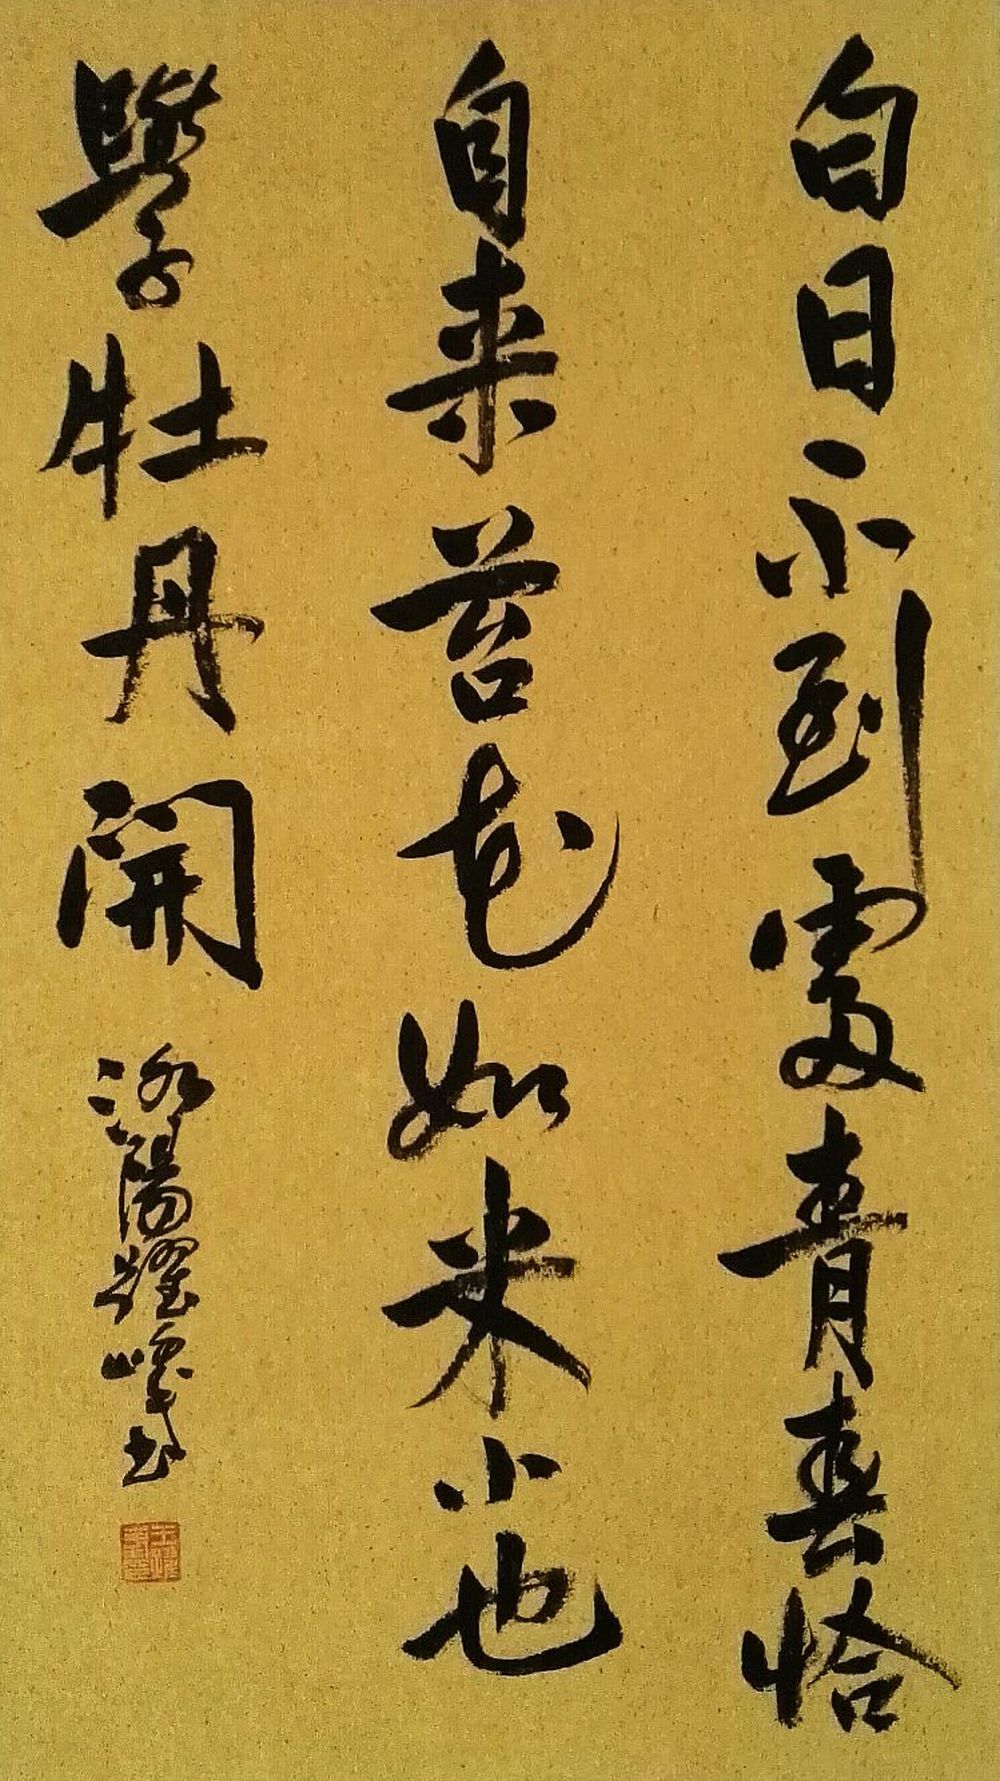 白日不到處青春恰
自來苔花如米小也
學牡丹開
洛陽躍峰書